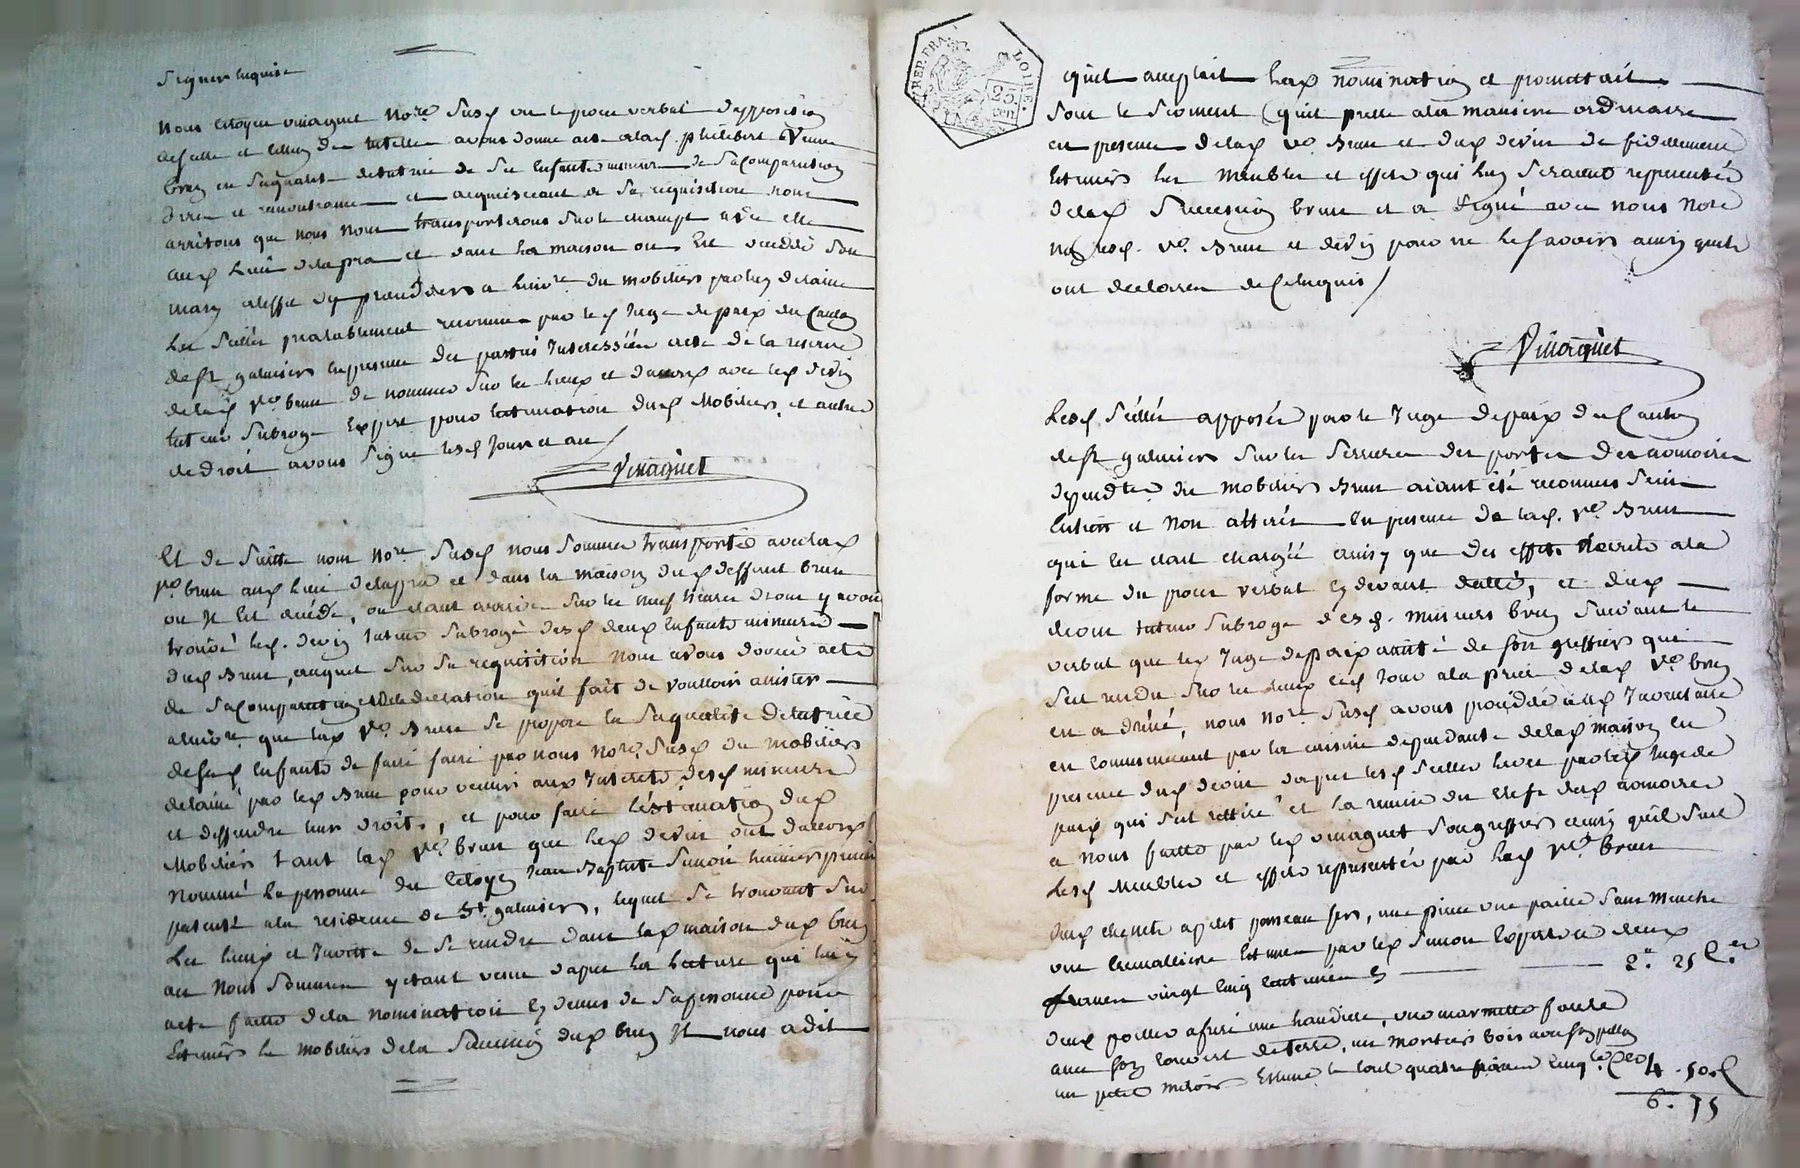 signer enquise
Nous citoyen vinaguet Nore. susd vu le proces verbal d'apposition
de scelle et celluy de tutelle avons donne acte a lad. philiberte Veuve
brun en sa qualite de tutrice de ses Enfants mineurs de sa Comparution
dires et remontrances et acquiesceant a sa requisition nous
arrêtons que nous nous transporterons sur le champt avec elle
aud. lieu de lapra et dans la maison ou est decedé son
mary a l'effet dy proceder a linvre. du mobilier par luy delaissé
les scellés prealablement reconnus par le d. Juge de paix du Canton
de st galmier en presence des parties Interessées acte de la reserve
de lad. ve. brun de nommer sur les lieux et d'accord avec led. devin
tuteur subrogé Expert pour lestimation dud. Mobilier, et autres
de droit avons signe lesd. Jour et an /
Vinaguet
Et de suitte nous Nore. susd. nous sommes transportés avec lad.
ve. brun aud. lieu de lapra et dans la maison dud. deffunt brun
ou Il est décédé, ou etant arrivé sur les neuf heures du matin y avons
trouvé led. devin tuteur subrogé desd. deux Enfants mineurs
dud. Brun, auquel sur sa requisition Nous avons donné acte
de sa Comparution et de la declaration quil fait de voulloir assister
a linvre. que lad. ve. Brun se propose en sa qualité de tutrice
de sesd. Enfants de faire faire par nous Nore. susd. du mobilier
delaissé par led. Brun pour veiller aux Interets desd. mineurs
et deffendre leurs droits, et pour faire l'estimation dud.
Mobilier tant lad. ve. brun que led. devin ont d'accord
Nommé la personne du Citoyen Jean Baptiste simon huissier
patenté a la residence de St. galmier, lequel se trouvant sur
les lieux et Invité de se rendre dans lad. maison dud. brun
ou Nous sommes y etant venu d'après la lecture qui luy
acte faitte de la nomination cy dessus de sa personne pour
Estimer le mobilier de la succession dud. brun Il nous a dit
REP. FRA. LOIRE. 25 cen
quil acceptait lad. nomination et promettait
sous le serment (quil prette a la maniere ordinaire
en presence de lad. ve. Brun et dud. devin de fidellement
Estimer les Meubles et effets qui luy seraient representés
de lad. succession brun et a signé avec nous Nore
non lesd. ve. Brun et devin pour ne le savoir ainsy quils
ont declarés de Ce enquis /
Vinaguet
Lesd. scellés apposés par le Juge de paix du Canton
de st galmier sur les serrures des portes des armoires
dependtes. du mobilier Brun aiant été reconnus sains
entiers et Non alterés en presence de lad. ve. Brun
qui en etait chargée ainsy que des effets décrits a la
forme du proces verbal cy devant datté, et dud.
devin tuteur subrogé desd. mineurs brun suivant le
verbal que led. Juge de paix assisté de son greffier qui
sest rendu sur les lieux ced. Jour a la prière de lad. ve. brun
en a dréssé, nous Nore. susd. avons procédé aud. Inventaire
en commenceant par la cuisine dependante de lad. maison en
presence dud. devin d'apres lesd. scelles levés par led. Juge de
paix qui sest rettiré et la remise des clefs dud. armoires
a nous faitte par led. vinaguet son greffier ainsy quil suit
Lesd. Meubles et effets representés par lad. ve. brun
deux chenets a petit pommeau fer, une pince une poaile sans Manche
une Cremalliere Estimés par led. simon Expert a deux
francs vingt cinq Centimes cy 2. 25 C.es
Deux poeles a frire une chaudiere, une marmitte fonte
avec son couvert de terre, un mortier bois avec son pillon
un petit miroir Estimé le tout quatre francs cinqte. Ces 4. 50. C
6. 75